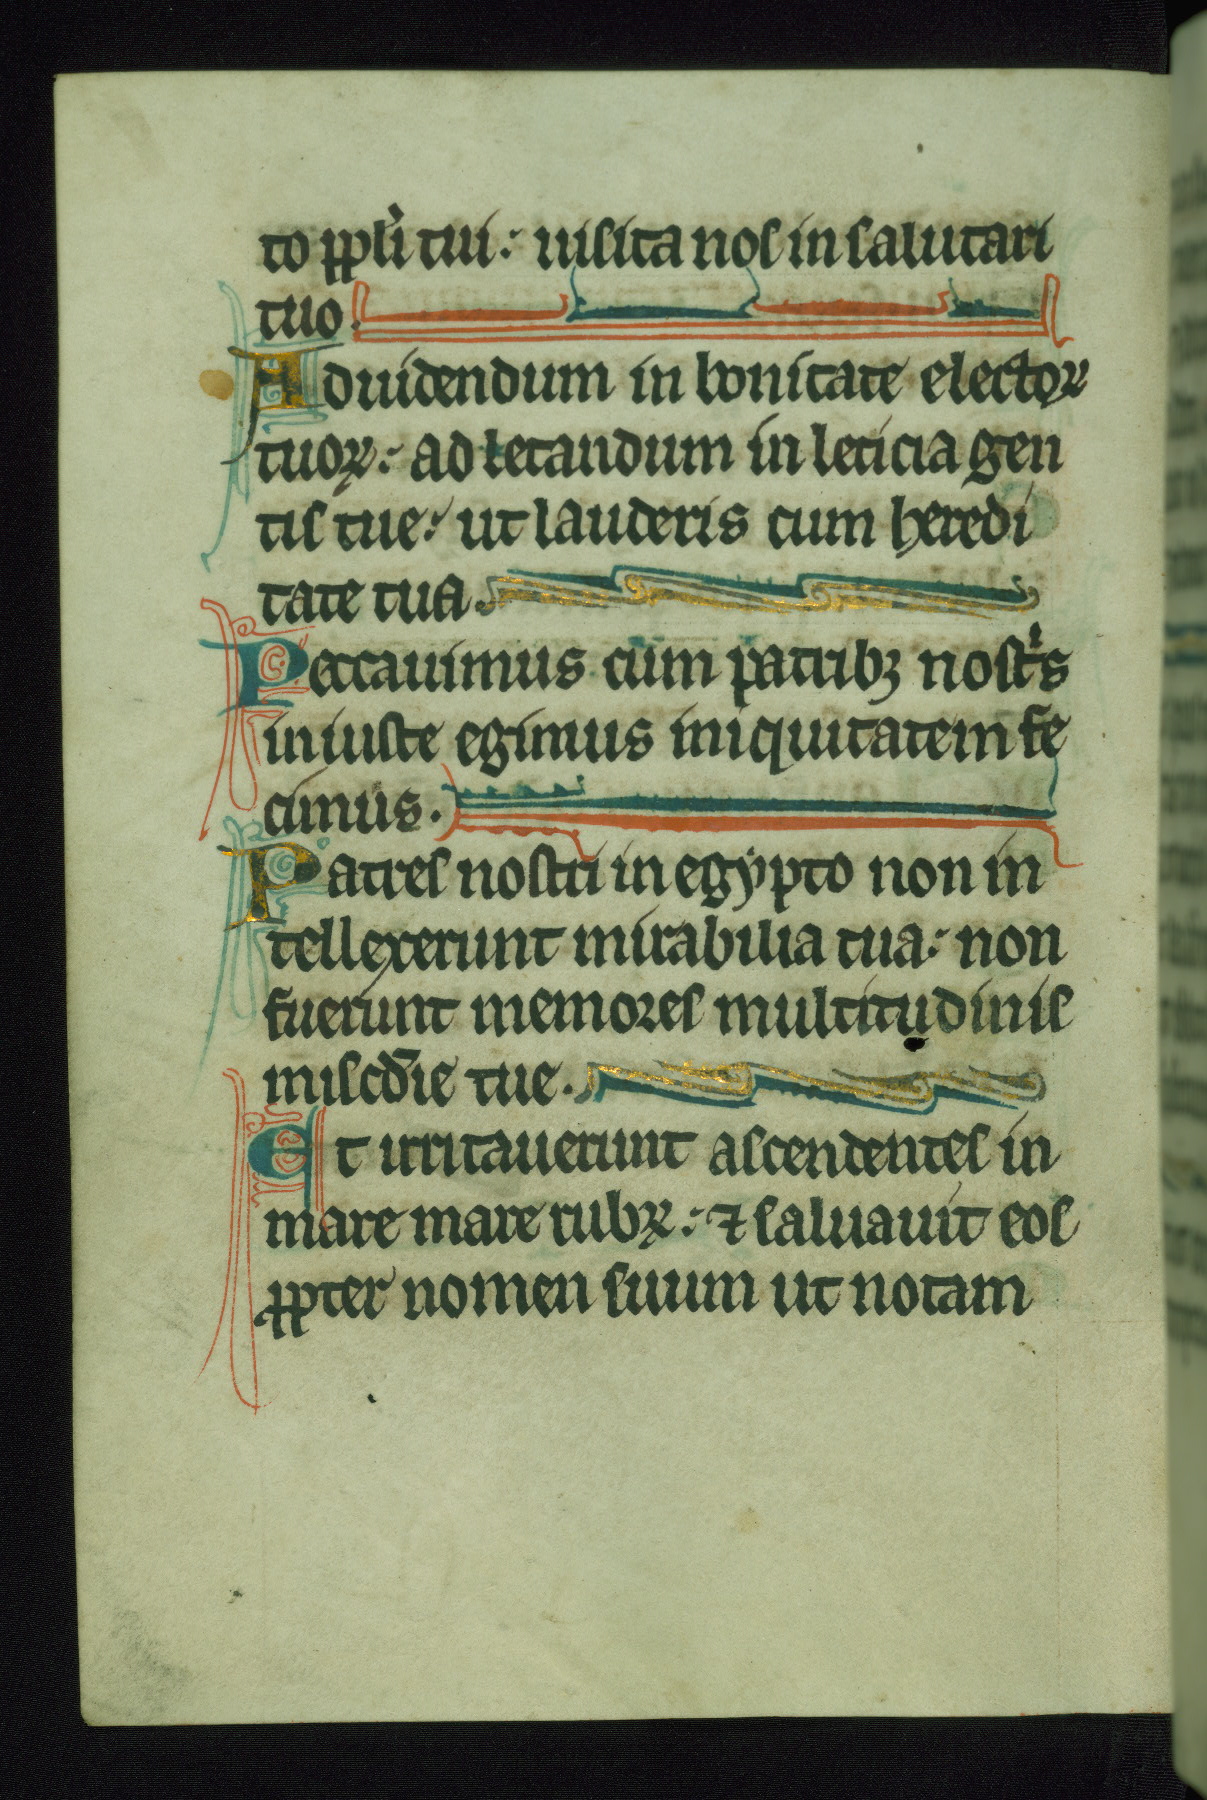 to ppli tui: uisita nos in salutari
tuo.
Ad uidendum in bonitate electoꝝ
tuoꝝ: ad letandum in leticia gen
tis tue: ut lauderis cum heredi
tate tua.
Peccauimus cum patribꝫ nostͥs
iniuste egimus iniquitatem fe
cimus.
Patres nostri in egypto non in
tellexerunt mirabilia tua: non
fuerunt memores multitudinis
miscd̄ie tue.
Et irritauerunt ascendentes in
mare mare rubꝝ: ⁊ saluauit eos
ꝓpter nomen suum ut notam